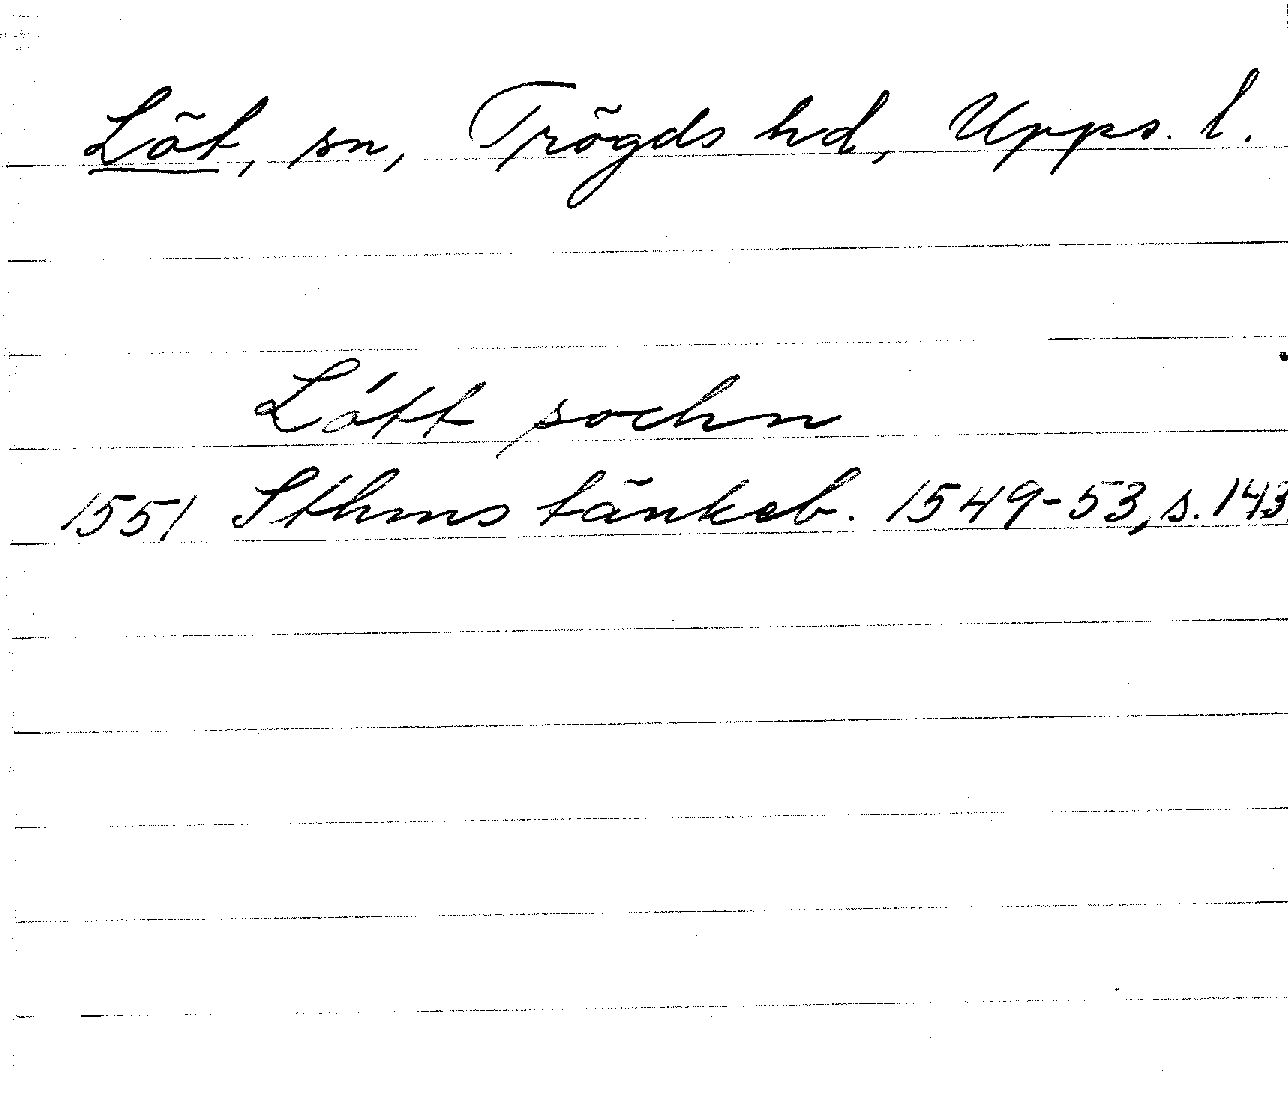 Löt, sn, Trögds hd, Upps. l.
Lótt sochn
1551 Sthms tänkeb. 1549-53, s. 143